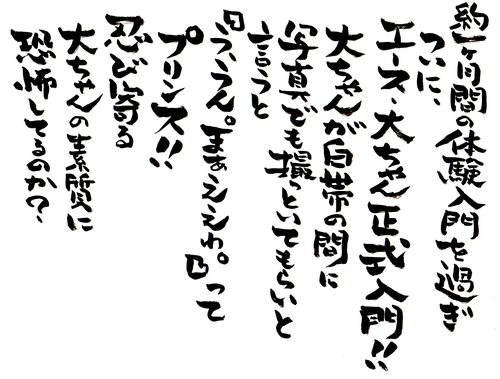 約一ヶ月間の体験入門を過ぎ
ついに、
エース・大ちゃん正式入門!!
大ちゃんが白帯の間に
写真でも撮っといてもらいと
言うと
「う、うん。まぁええわ。」って
プリンス!!
忍び寄る
大ちゃんの素質に
恐怖してるのか?